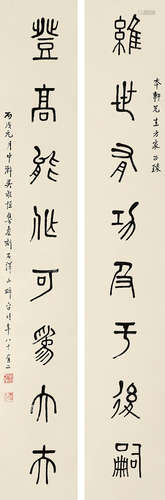 維世有功及于後嗣
先生方家正
登高能作可為大夫
丙戌元月中澣吳敬恆集秦刻石繹山碑字時年八十有二